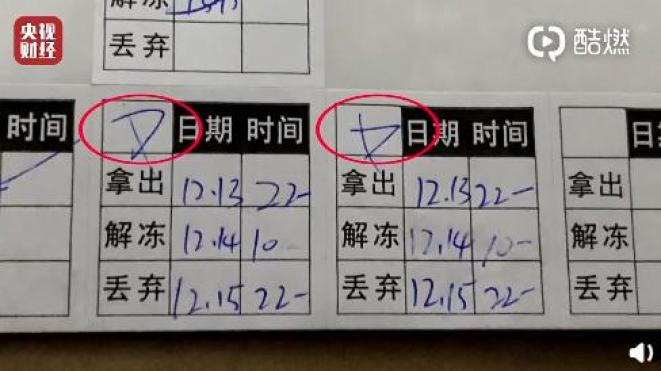 央视
财经
酷燃
解冻
丢弃
时间
日期 时间
拿出 12.13 22-
解冻 12.14 10-
丢弃 12.15 22-
日期 时间
拿出 12.13 22-
解冻 12.14 10-
丢弃 12.15 22-
日
拿出
解冻
丢弃